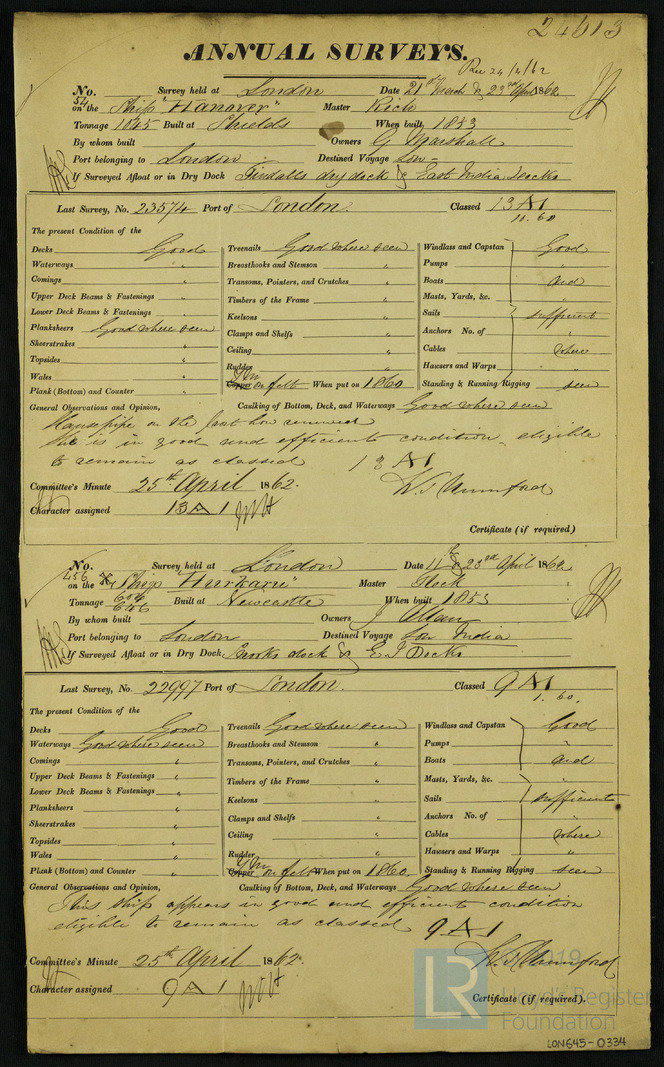 24613
ANNUAL SURVEYS.
Rec 24/4/62
No. 54 Survey held at London Date 21st March & 23rd April 1862
on the Ship "Hanover" Master Rich
Tonnage 1045 Built at Shields When built 1853
By whom built Owners G Marshall
Port belonging to London Destined Voyage
If Surveyed Afloat or in Dry Dock Tindalls dry dock & East India Docks
Last Survey, No. 23574 Port of London. Classed 13 A1
11. 60
The present Condition of the
Decks Good Treenails Good where seen Windlass and Capstan Good
Waterways " Breasthooks and Stemson " Pumps "
Comings " Transoms, Pointers, and Crutches " Boats and
Upper Deck Beams & Fastenings " Timbers of the Frame " Masts, Yards, &c. "
Lower Deck Beams & Fastenings " Keelsons " Sails sufficient
Planksheers Good where seen Clamps and Shelfs " Anchors No. of "
Sheerstrakes " Ceiling " Cables where
Topsides " Rudder " Hawsers and Warps "
Wales " Copper YM on felt When put on 1860 Standing & Running Rigging seen
Plank (Bottom) and Counter " Caulking of Bottom, Deck, and Waterways Good where seen
General Observations and Opinion,
Hawse pipe on the port bow renewed
She is in good and efficient condition, eligible
to remain as classed 13 A1
Committee's Minute 25th April 1862.
Character assigned 13 A 1
Certificate (if required)
No. 456 Survey held at London Date 11th & 23rd April 1862
on the Ship "Hurkaru" Master
Tonnage 604 646 Built at Newcastle When built 1853
By whom built Owners J Allan
Port belonging to London Destined Voyage India
If Surveyed Afloat or in Dry Dock, dock & E I Docks
Last Survey, No. 22997 Port of London. Classed 9 A1
1. 60.
The present Condition of the
Decks Good Treenails Good where seen Windlass and Capstan Good
Waterways Good where seen Breasthooks and Stemson " Pumps "
Comings " Transoms, Pointers, and Crutches " Boats and
Upper Deck Beams & Fastenings " Timbers of the Frame " Masts, Yards, &c. "
Lower Deck Beams & Fastenings " Keelsons " Sails sufficient
Planksheers " Clamps and Shelfs " Anchors No. of "
Sheerstrakes " Ceiling " Cables where
Topsides " Rudder " Hawsers and Warps "
Wales " Copper YM on felt When put on 1860. Standing & Running Rigging seen
Plank (Bottom) and Counter " Caulking of Bottom, Deck, and Waterways Good where seen
General Observations and Opinion,
This ship appears in good and efficient condition
eligible to remain as classed 9 A1
Committee's Minute 25th April 1862.
Character assigned 9 A 1
Certificate (if required).
LR
2019
Lloyd's Register
Foundation
LON645-0334